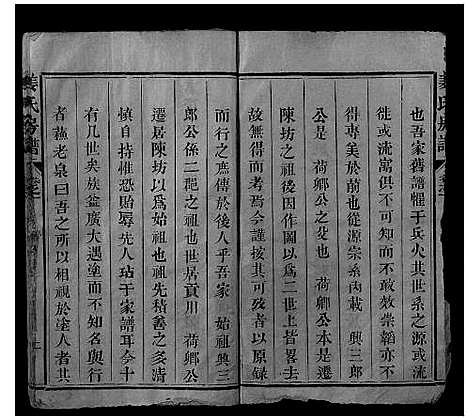 也吾家舊譜罹于兵火其世系之或流
徙或流寓俱不可知而不敢效崇韜亦不
得専美於前也從源宗系內載 興三郎
公是 荷卿公之父也 荷卿公本是為
陳坊之始祖因作圖以為二世上皆畧去
故無得而考焉今會謹按其可攷者以原錄
而行之庶傳於後人乎吾家 始祖興三
郎公係二耙之祖也世居貢川 荷卿公
遷居陳坊以為始祖也祖先積善之多清
慎自持惟恐貽辱先人玷于家譜耳今十
有几世矣族益廣大遇塗而不知名與行
者蘓老泉曰吾之所以相視於塗人者其
姜氏房譜